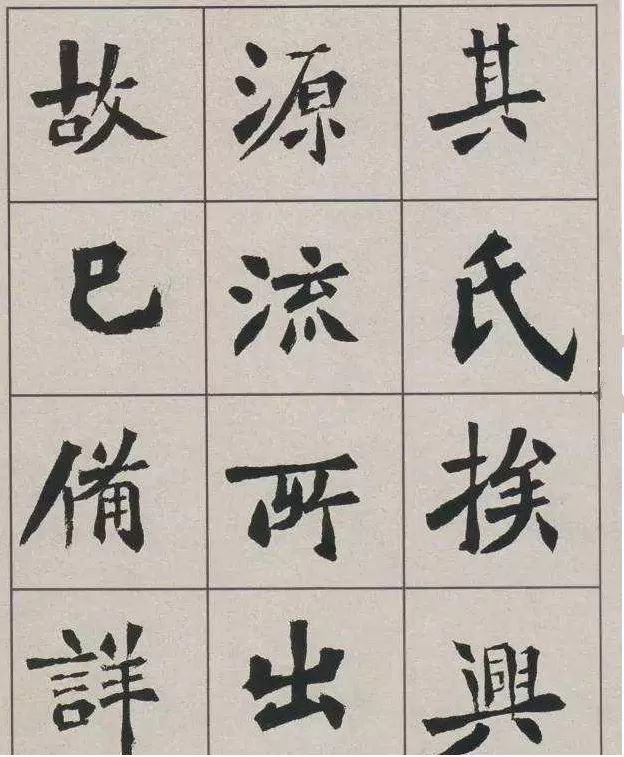 其氏族興
源流所出
故已備詳